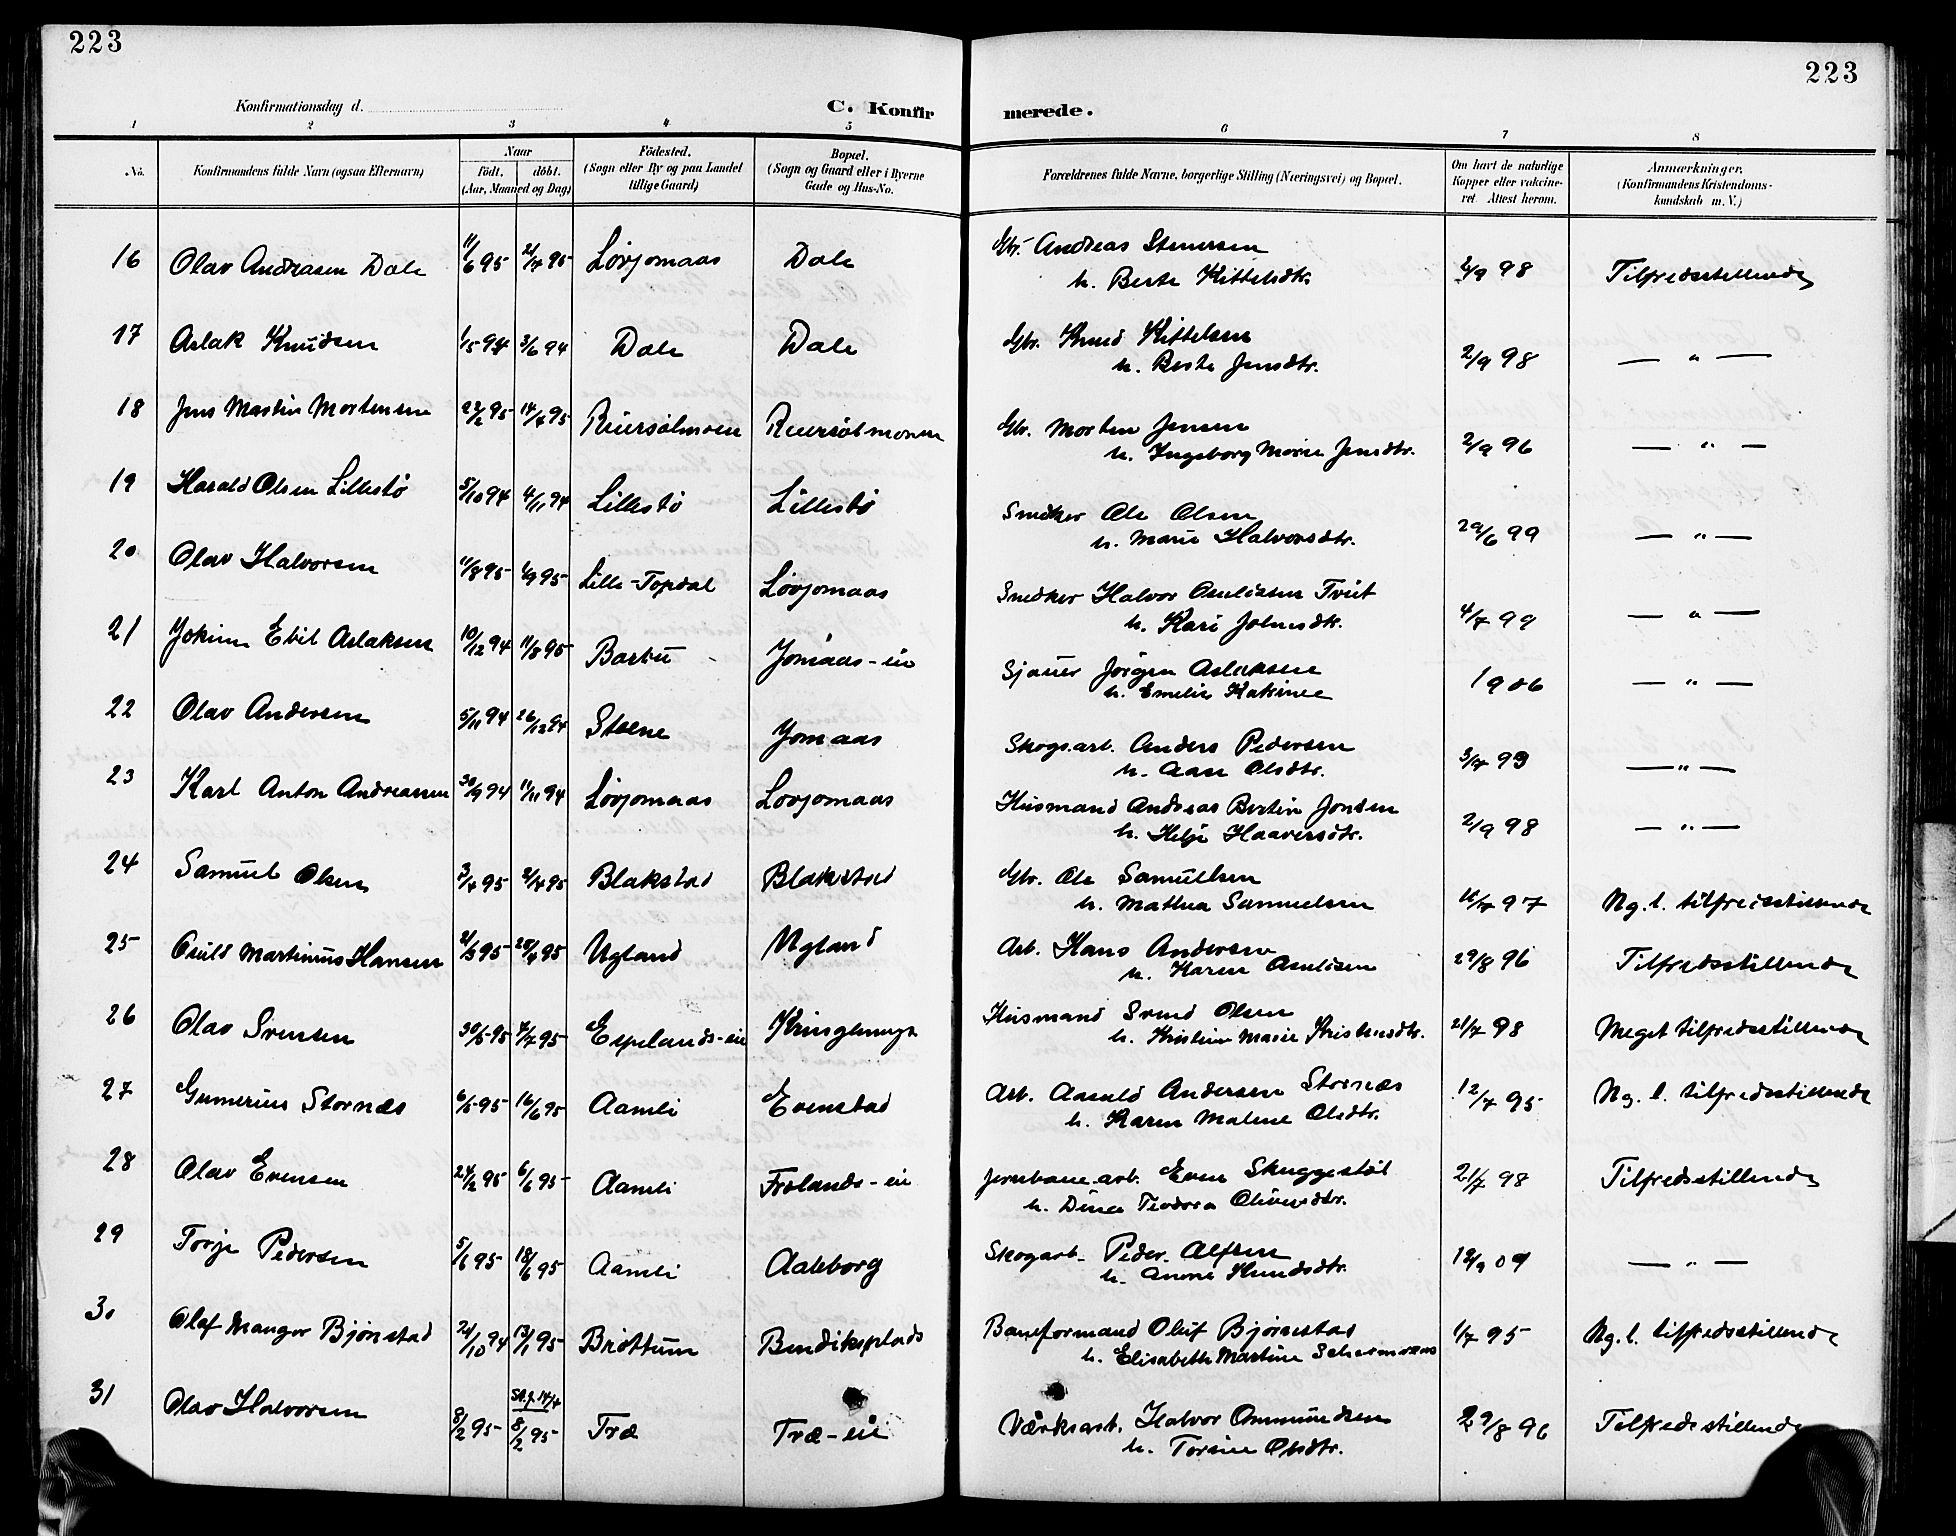 223
223
Konfirmationsdag d.
C. Konfir
merede.
1 2 3 4 5 6 7 8
No. Konfirmandens fulde Navn (ogsaa Efternavn) Naar født, døbt. (Aar, Maaned og Dag) Fødested. (Sogn eller By og paa Landet tillige Gaard) Bopæl. (Sogn og Gaard eller i Byerne Gade og Hus-No. Forældrenes fulde Navne, borgerlige Stilling (Næringsvei) og Bopæl. Om havt de naturlige Kopper eller vakcineret. Attest herom. Anmærkninger. (Konfirmandens Kristendomskundskab m. V.)
16 Olav Andreasen Dale 11/6 95 21/7 95 Løvjomaas Dale Gbr. Andreas Stenersen 2/9 98 Tilfredsstillende
h. Berte Kittelsdtr.
17 Aslak Knudsen 1/5 94 3/6 94 Dale Dale Gbr. Knud Kittelsen 2/9 98 — " —
h. Berte Jensdtr.
18 Jens Martin Mortensen 22/2 95 14/4 95 Reiersølmoen Reiersølmoen Gbr. Morten Jensen 2/9 96 — " —
h. Ingeborg Marie Jensdtr.
19 Harald Olsen Lillestø 5/10 94 4/11 94 Lillestø Lillestø Snedker Ole Olsen 29/6 99 — " —
h. Marie Halvorsdtr.
20 Olav Halvorsen 11/8 95 1/9 95 Lille-Topdal Løvjomaas Snedker Halvor Aanlissen Tveit 4/7 99 — " —
h. Kari Johnsdtr.
21 Jokim Ebil Aslaksen 10/12 94 11/8 95 Barbu Jomaas-eie Sjauer Jørgen Aslaksen 1906 — " —
h. Emelie Katrine
22 Olav Andersen 5/11 94 26/12 94 Steene Jomaas Skogsarb. Anders Pedersen 3/7 99 — " —
h. Aase Olsdtr.
23 Karl Anton Andreassen 30/9 94 11/11 94 Løvjomaas Løvjomaas Husmand Andreas Bertin Jonsen 2/9 98 — " —
h. Helje Haaversdtr.
24 Samuel Olsen 3/4 95 21/4 95 Blakstad Blakstad Gbr. Ole Samuelsen 16/7 97 Ng. l. tilfredsstillende
h. Mathea Samuelsen
25 Osuld Martinius Hansen 21/3 95 28/4 95 Ugland Ugland Arb. Hans Andersen 29/8 96 Tilfredsstillende
h. Karen
26 Olav Svensen 30/5-95 7/7 95 Espelands-eie Kringlemyr Husmand Svend Olsen 21/7 98 Meget tilfredsstillende
h. Kristine Marie Kristensdtr.
27 Gunerius Stornæs 6/5-95 16/6 95 Aamli Evenstad Arb. Aasuld Andersen Stornæs 12/7 95 Ng. l. tilfredsstillende
h. Karen Malene Olsdtr.
28 Olav Evensen 24/2 95 6/6 95 Aamli Frolands-eie Jernbane.arb. Even Skuggestøl 21/7 98 Tilfredsstillende
h. Dina Teodora Oliversdtr.
29 Torje Pedersen 5/1 95 18/6 95 Aamli Aaleborg Skogarb. Peder Alfsen 12/9 09 — " —
h. Anne Knudsdtr.
30 Olaf Mangor Bjørnstad 24/10 94 13/1 95 Brøttum Bendiksplads Baneformand Oluf Bjørnstad 1/7 95 Ng. l. tilfredsstillende
h. Elisabeth Martine
31 Olav Halvorsen 8/2 95 St. f. 14/4 8/2 95 Træ Træ-eie Værksarb. Halvor Ommundsen 29/8 96 Tilfredsstillende
h. Torine Olsdtr.